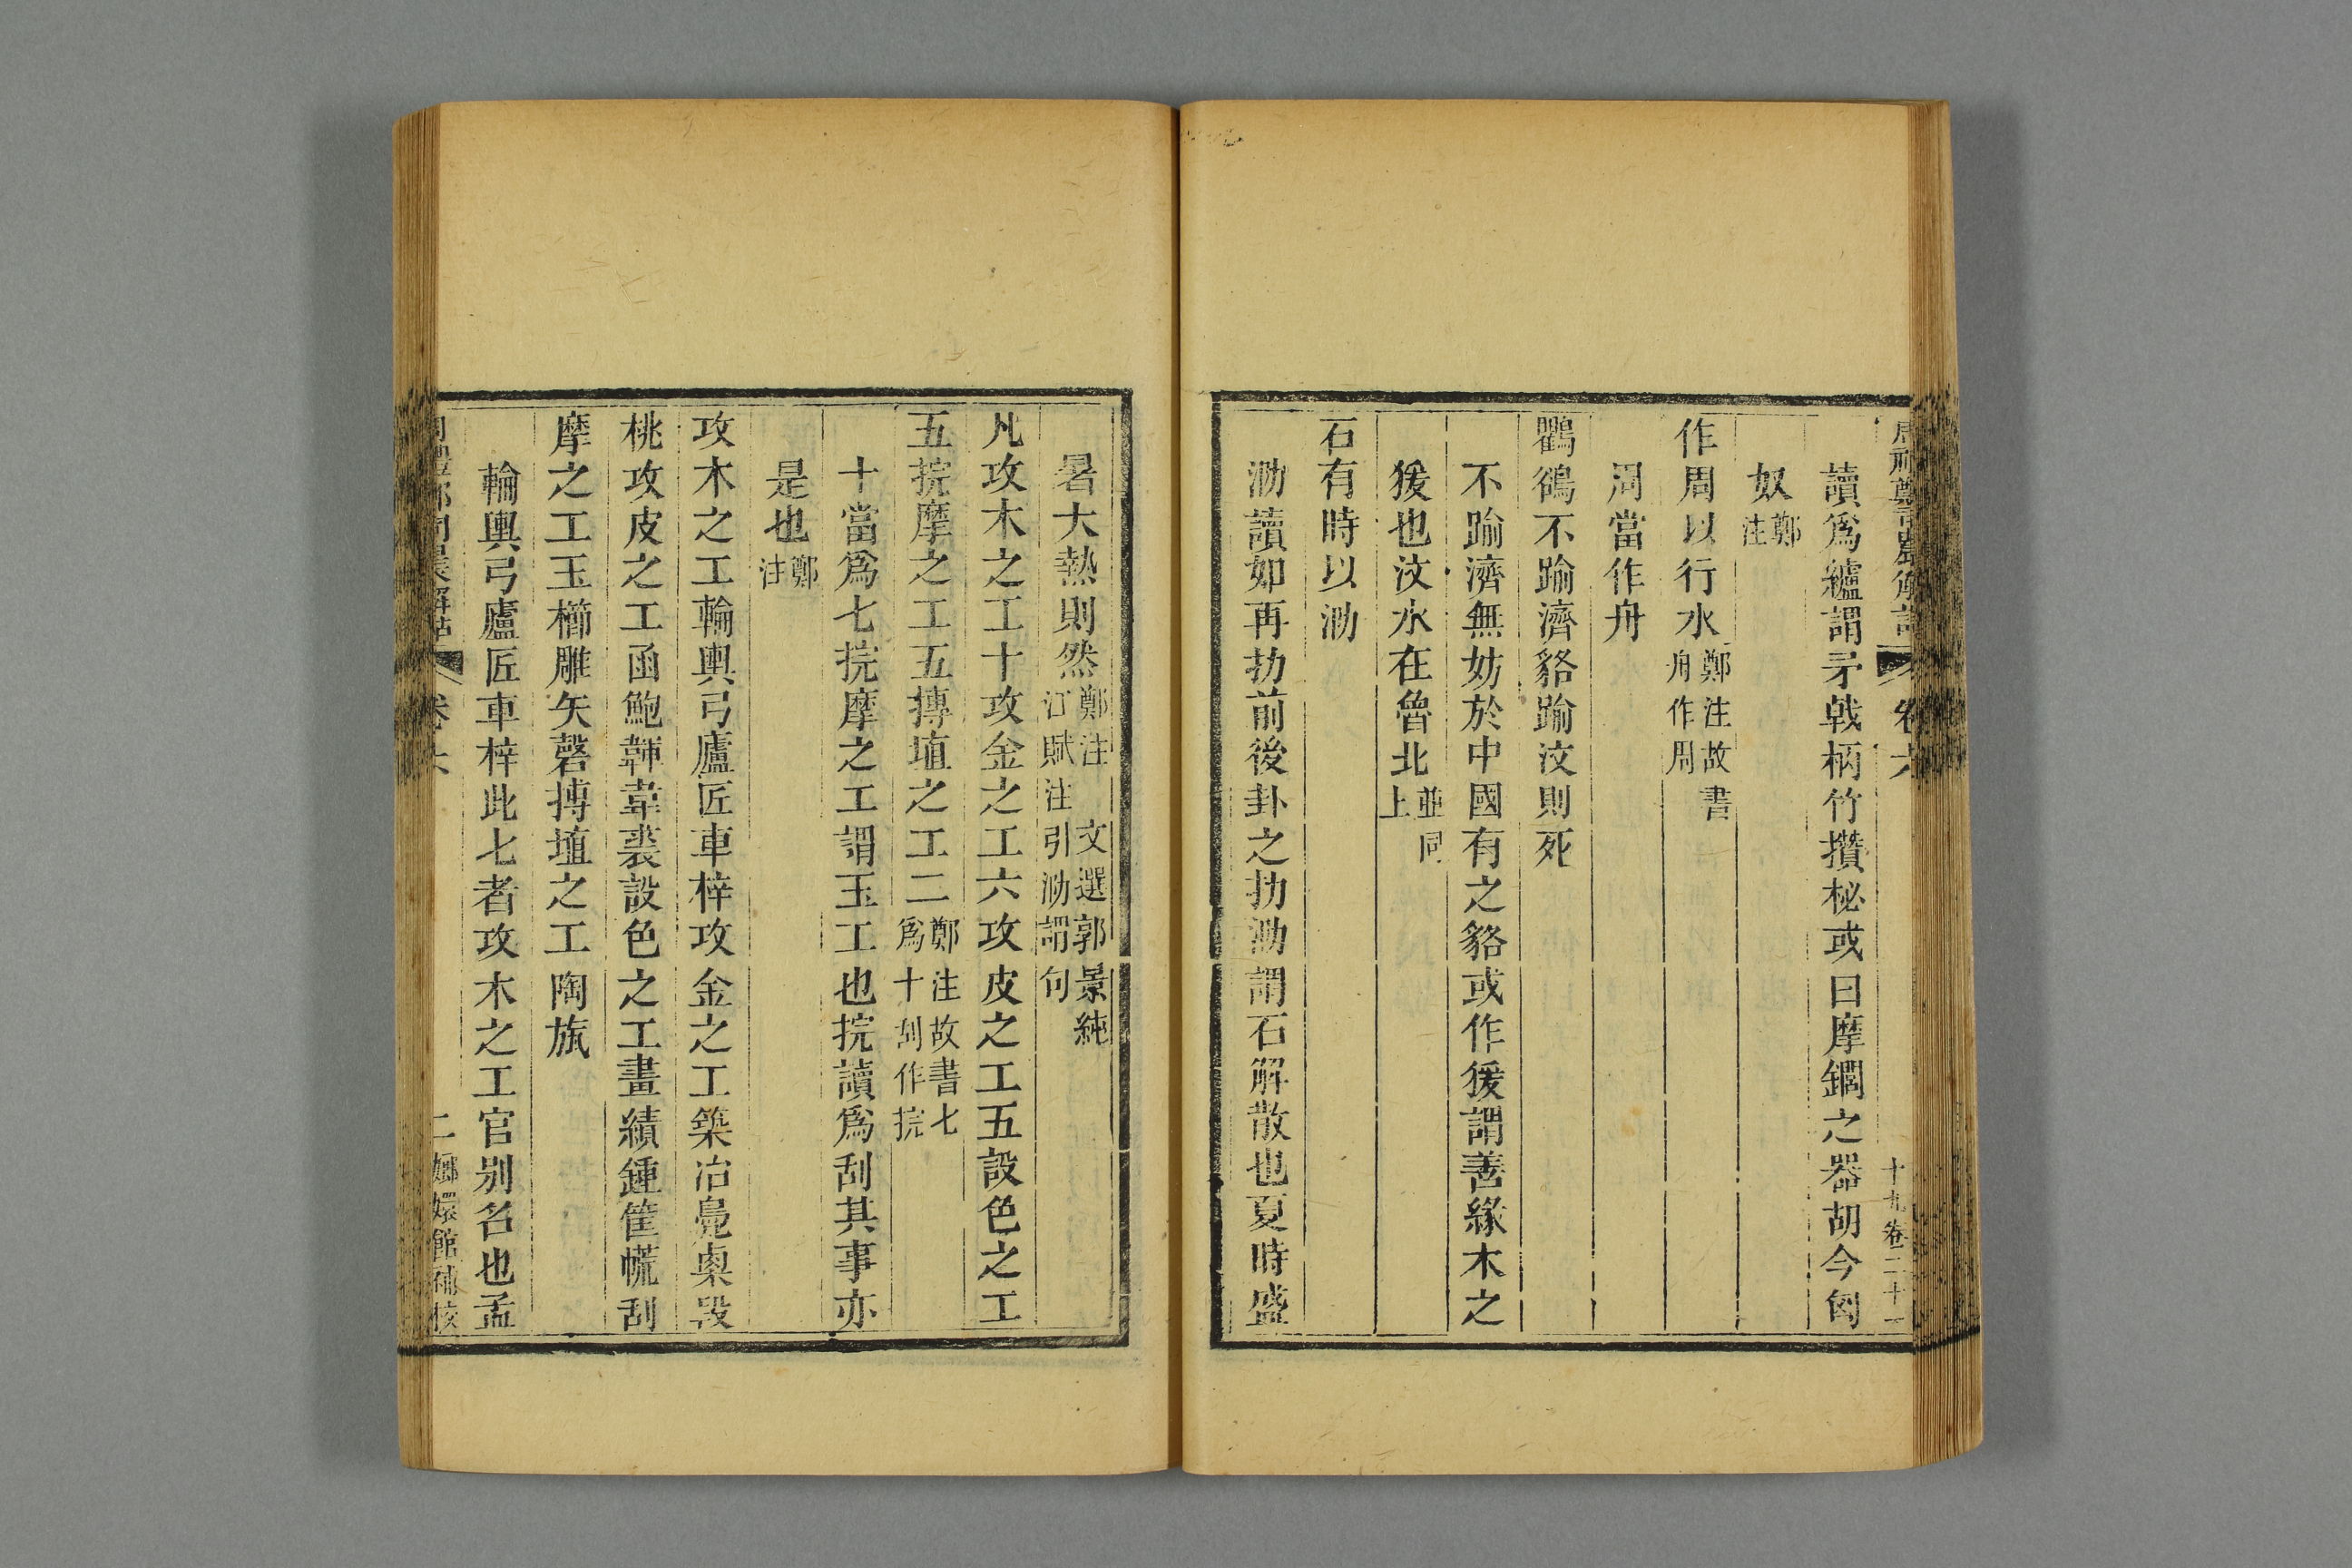 卷六
十九卷二十一
讀爲纑謂矛戟柄竹攢柲或曰摩鐧之器胡今匈
奴鄭注
作周以行水鄭注故書舟作周
周當作舟
鸜鵒不踰濟貉踰汶則死
不踰濟無妨於中國有之貉或作猨謂善緣木之
猨也汶水在魯北並同上
石有時以泐
泐讀如再扐而後卦之扐泐謂石解散也夏時盛
暑大熱則然鄭注 文選郭景純江賦注引泐謂句
凡攻木之工十攻金之工六攻皮之工五設色之工
五捖摩之工五摶埴之工二鄭注故書七爲十刮作捖
十當爲七捖摩之工謂玉工也捖讀爲刮其事亦
是也鄭注
攻木之工輪輿弓廬匠車梓攻金之工築冶鳧㮚段
桃攻皮之工函鮑韗韋裘設色之工畫繢鍾筐㡛刮
摩之工玉櫛雕矢磬摶埴之工陶瓬
輪輿弓廬匠車梓此七者攻木之工官別名也孟
卷六
二嫏嬛館補校